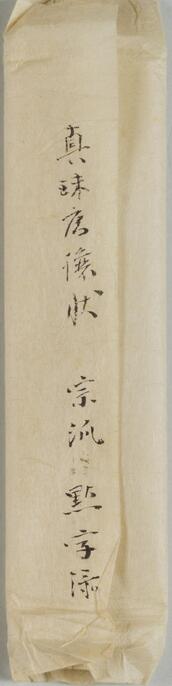 真珠庵状 宗派點字添